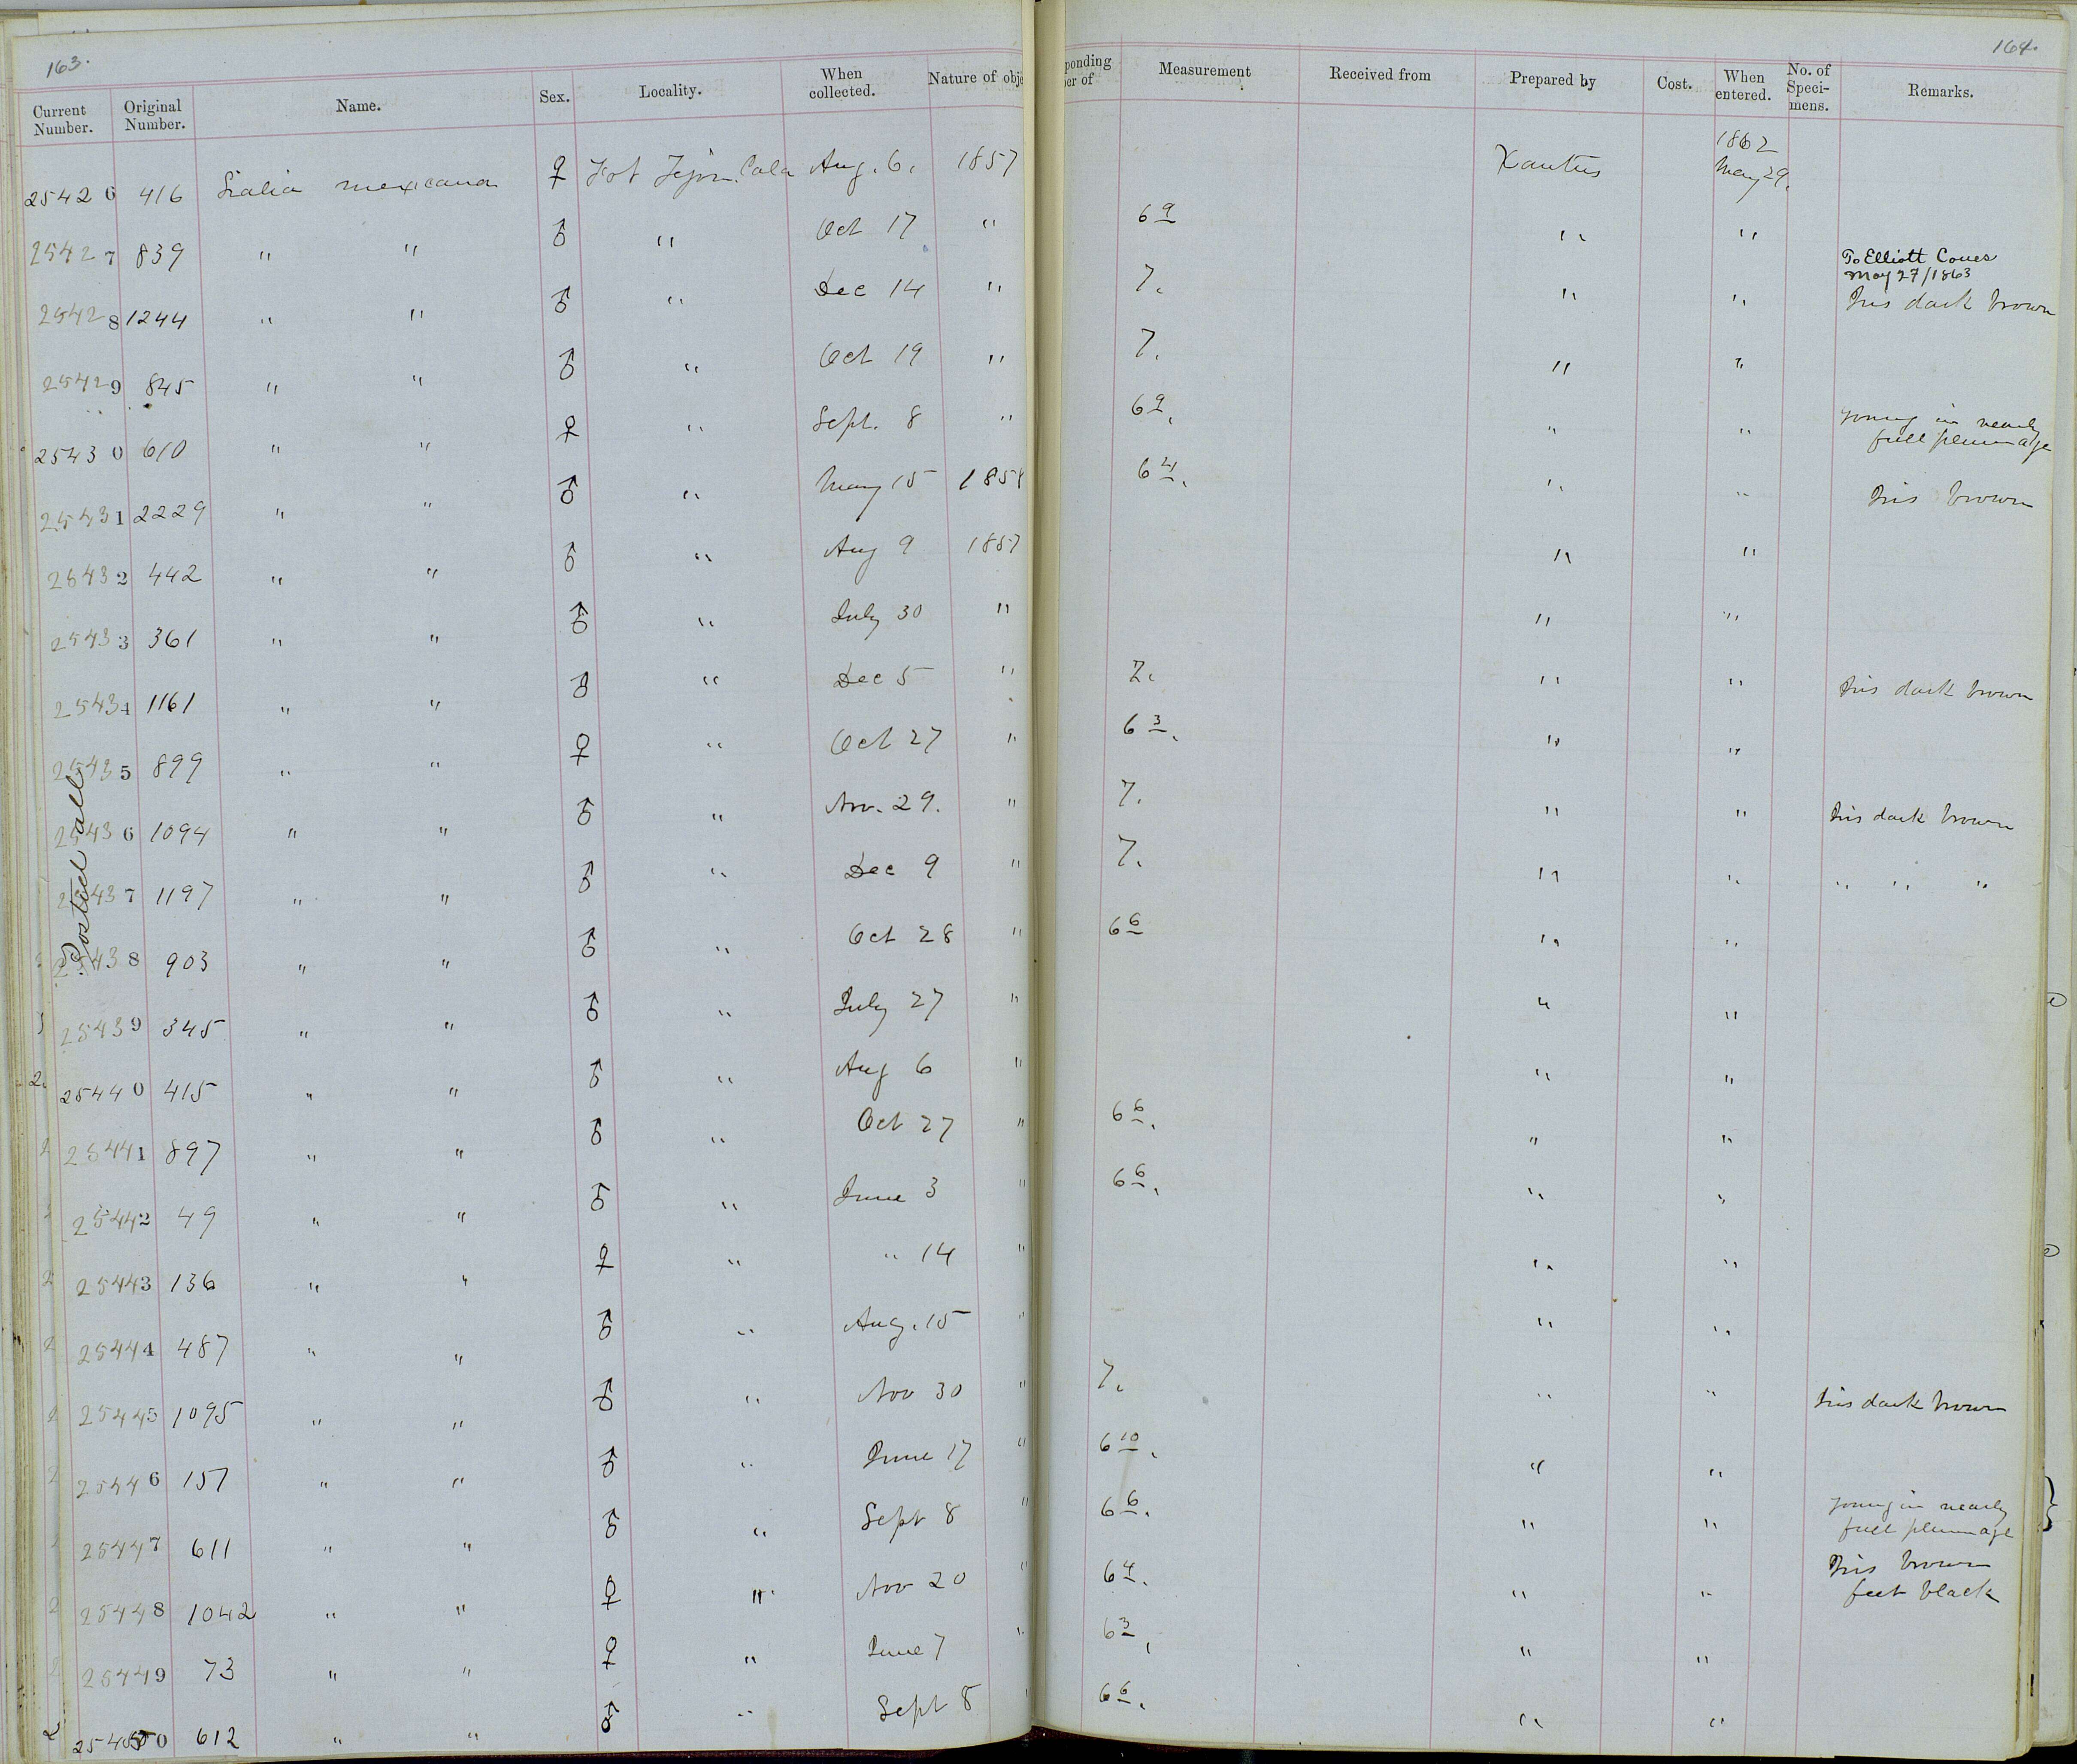 163.
164.
Current Number. Original Number. Name. Sex. Locality. When collected. Nature of obje ponding er of Measurement Received from Prepared by Cost. When entered. No. of Speci- mens. Remarks.
25426 416 Sialia mexicana ♀ Fort Tejon. Cala Aug. 6. 1857 Xantus 1862 May 29.
25427 839 " " ♂ " Oct 17 " 6 9 " "
To Elliott Coues
May 27/1863
25428 1244 " " ♂ " Dec 14 " 7. " " Iris dark brown
25429 845 " " ♂ " Oct 19 " 7. " "
25430 610 " " ♀ " Sept. 8 " 6 9. " " young in nearly
full plumage
25431 2229 " " ♂ " May 15 1858 6 4. " " Iris brown
25432 442 " " ♂ " Aug 9 1857 " "
25433 361 " " ♂ " July 30 " " "
25434 1161 " " ♂ " Dec 5 " 7. " " Iris dark brown
25435 899 " " ♀ " Oct 27 " 6 3. " "
25436 1094 " " ♂ " Nov. 29. " 7. " " Iris dark brown
25437 1197 " " ♂ " Dec 9 " 7. " " " " "
25438 903 " " ♂ " Oct 28 " 6 6 " "
Posted all
25439 345 " " ♂ " July 27 " " "
25440 415 " " ♂ " Aug 6 " " "
25441 897 " " ♂ " Oct 27 " 6 6. " "
25442 49 " " ♂ " June 3 " 6 6. " "
25443 136 " " ♀ " " 14 " " "
25444 487 " " ♂ " Aug. 15 " " "
25445 1095 " " ♂ " Nov 30 " 7. " " Iris dark brown
25446 157 " " ♂ " June 17 " 6 10. " "
25447 611 " " ♂ " Sept 8 " 6 6. " " young in nearly
full plumage
25448 1042 " " ♀ " Nov 20 " 6 4. " " Iris brown
feet black
25449 73 " " ♀ " June 7 " 6 3. " "
25450 612 " " ♂ " Sept 8 " 6 6. " "